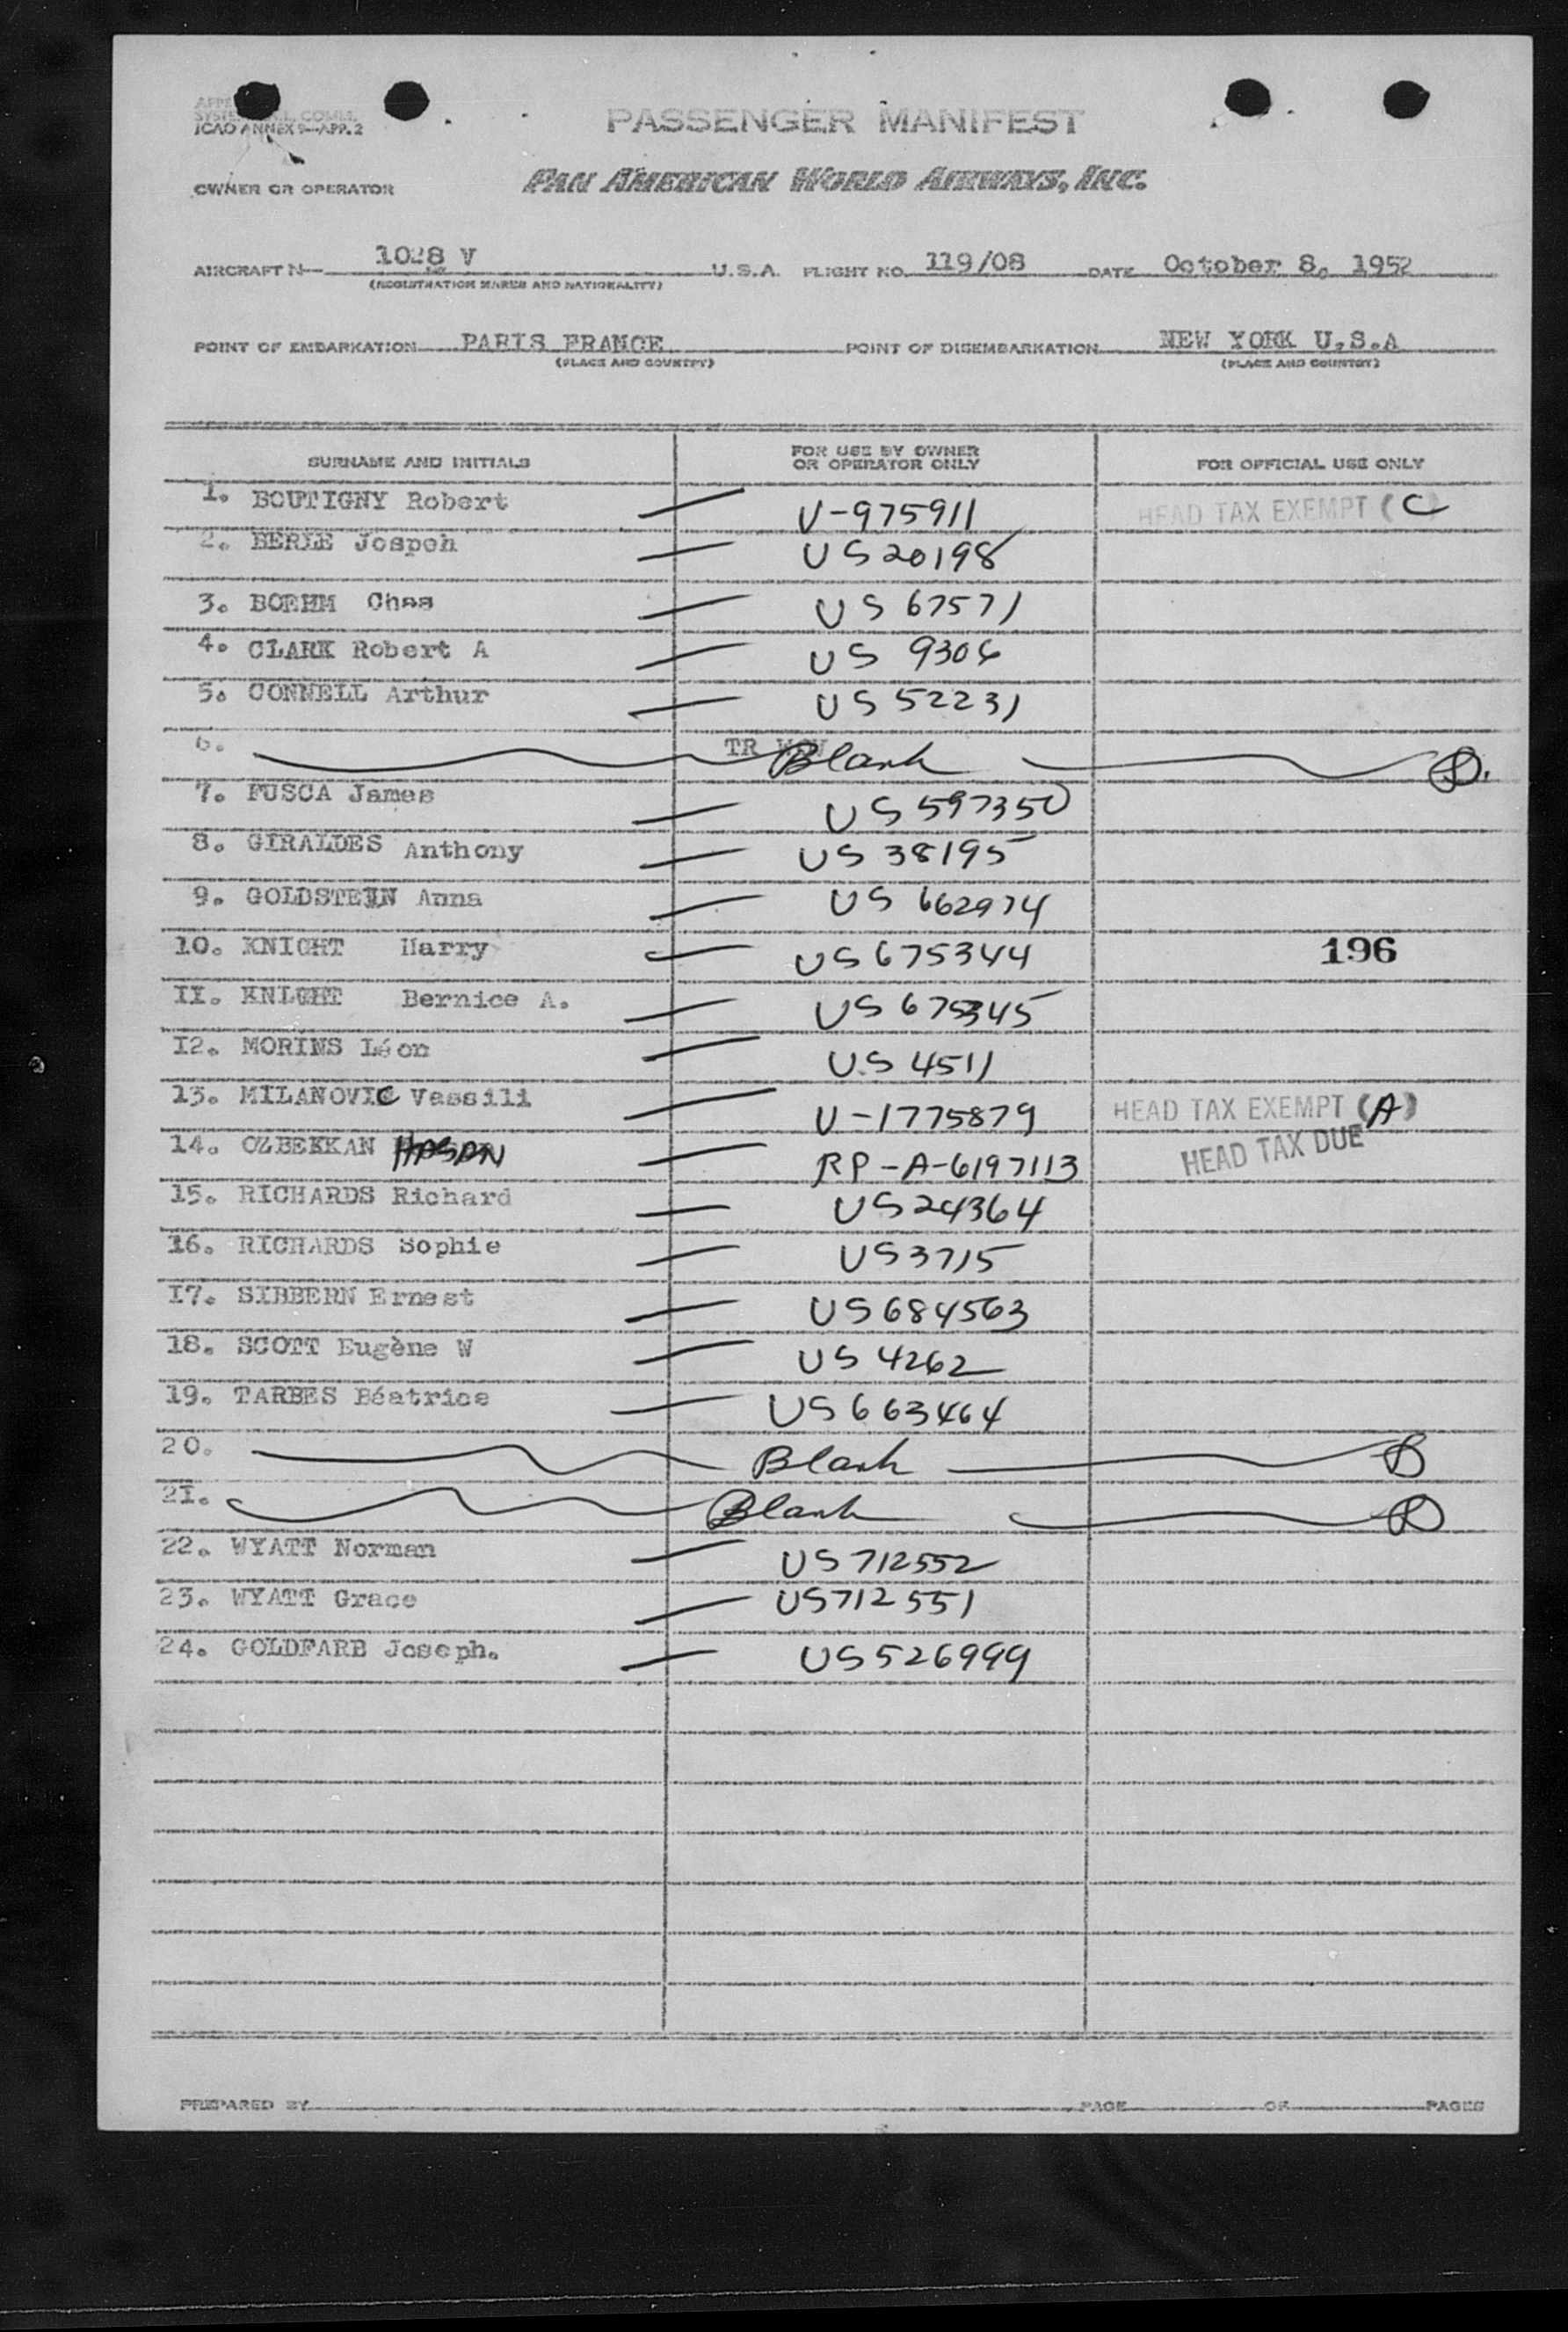 ICAO ANNEX 9—APP. 2
PASSENGER MANIFEST
OWNER OR OPERATOR PAN AMERICAN WORLD AIRWAYS, INC.
AIRCRAFT N— 1028 V U.S.A. FLIGHT NO. 119/08 DATE October 8, 1952
(REGISTRATION MARKS AND NATIONALITY)
POINT OF EMBARKATION PARIS FRANCE POINT OF DISEMBARKATION NEW YORK U.S.A
(PLACE AND COUNTRY) (PLACE AND COUNTRY)
SURNAME AND INITIALS FOR USE BY OWNER OR OPERATOR ONLY FOR OFFICIAL USE ONLY
1. BOUTIGNY Robert V-975911 HEAD TAX EXEMPT (C)
2. BERLE Jospeh US 20198
3. BOEHM Chas US 67571
4. CLARK Robert A US 9306
5. CONNELL Arthur US 52231
6. TR Blank
7. FUSCA James US 597350
8. GIRALDES Anthony US 38195
9. GOLDSTEIN Anna US 662974
10. KNIGHT Harry US 675344 196
II. KNIGHT Bernice A. US 675345
I2. MORINS Léon US 4511
I3. MILANOVIC Vassili V-1775879 HEAD TAX EXEMPT (A)
I4. OZBEKKAN HASAN RP-A-6197113 HEAD TAX DUE
I5. RICHARDS Richard US 24364
I6. RICHARDS Sophie US 3715
I7. SIBBERN Ernest US 684563
I8. SCOTT Eugène W US 4262
I9. TARBES Béatrice US 663464
20. Blank
2I. Blank
22. WYATT Norman US 712552
23. WYATT Grace US 712551
24. GOLDFARB Joseph. US 526999
PREPARED BY PAGE OF PAGES